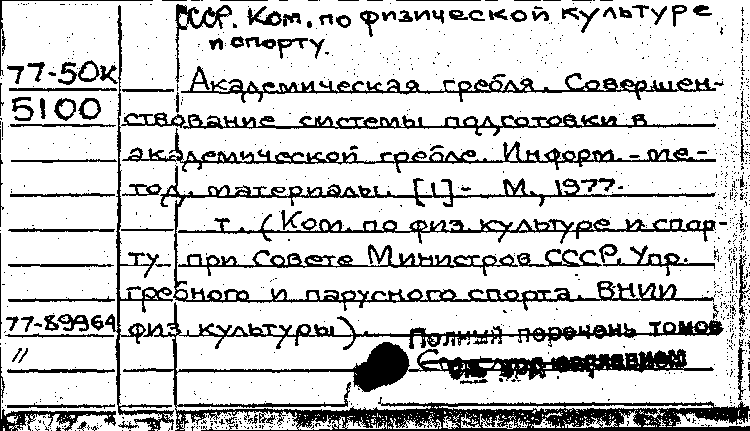 СССР. Ком. по физической культуре
и спорту.
77-50к
5100
Академическая гребля. Совершен-
ствование системы подготовки в
академической гребле. Информ.-ме-
тод. материалы. [1]- М., 1977-
т. (Ком. по физ. культуре и спор-
ту при Совете Министров СССР. Упр.
гребного и парусного спорта. ВНИИ
77-89964
физ. культуры).
Полный перечень томов
//
см. под заглавием